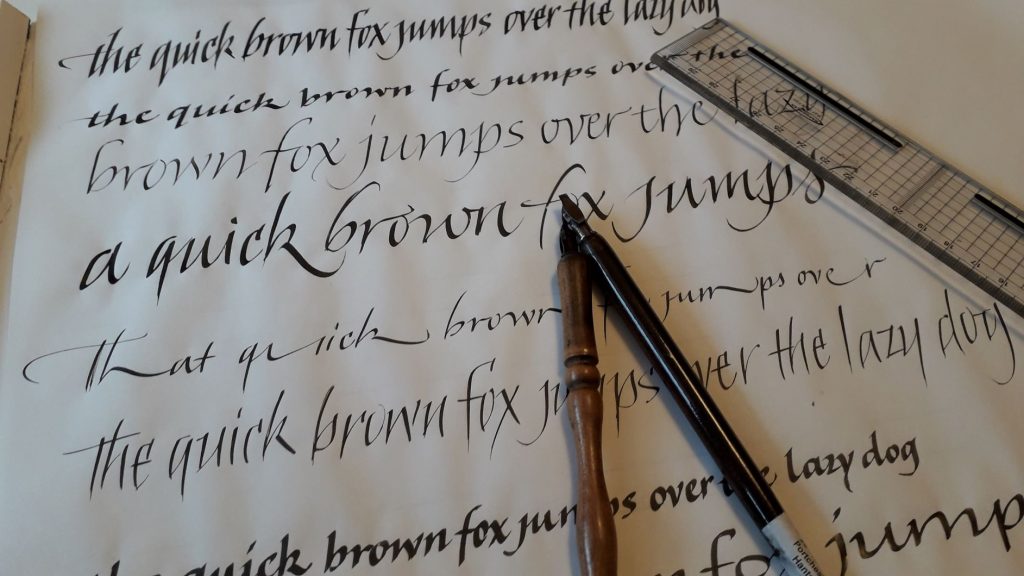 the quick brown fox jumps over the lazy dog
the quick brown fox jumps over the
brown fox jumps over the lazy
a quick brown fox jumps
That quick brown jumps over
the quick brown fox jumps over the lazy dog
the quick brown fox jumps over the lazy dog
fox jump